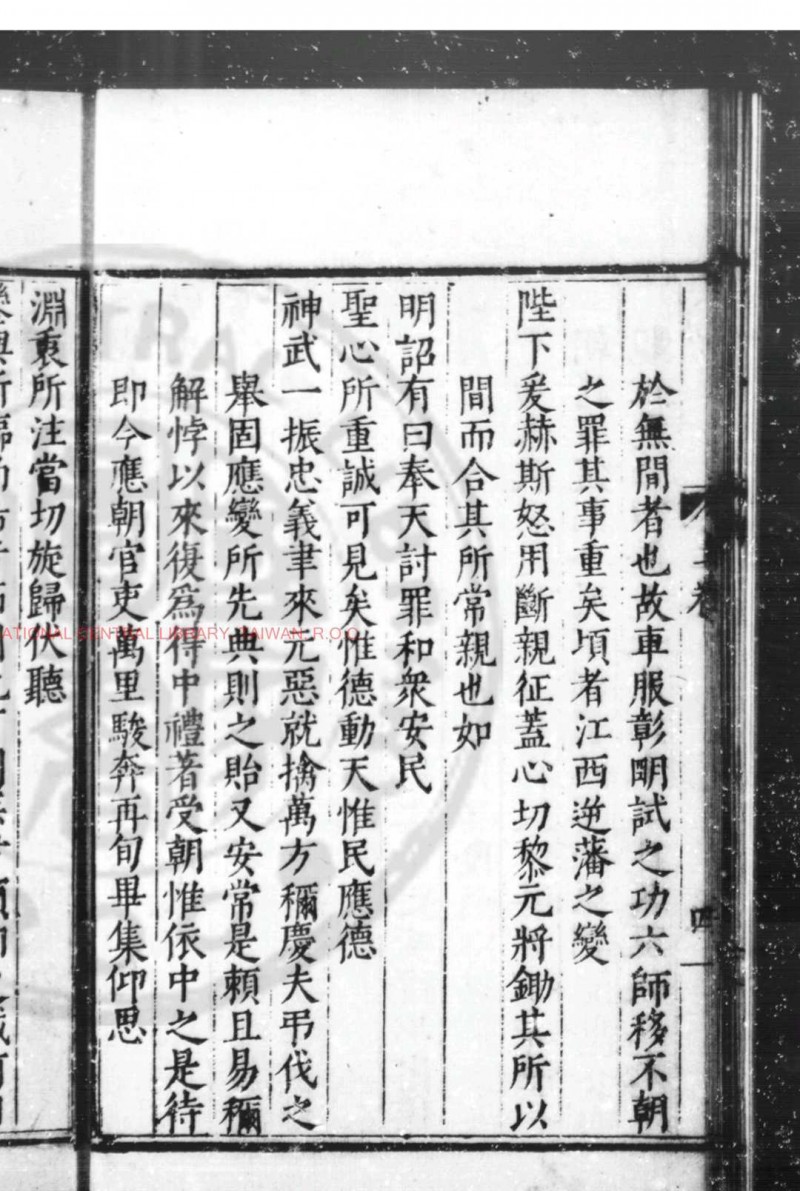 於無間者也故車服彰明試之功六師移不朝
之罪其事重矣頃者江西逆藩之變
陛下爰赫斯怒用斷親征蓋心切黎元將鋤其所以
間而合其所常親也如
明詔有曰奉天討罪和衆安民
聖心所重誠可見矣惟德動天惟民應德
神武一振忠義聿來元惡就擒萬方稱慶夫弔伐之
舉固應變所先典則之貽又安常是賴且易稱
解悖以來復爲得中禮著受朝惟依中之是待
即今應朝官吏萬里駿奔再旬畢集仰思
淵衷所注當切旋歸伏聽
NATIONAL CENTRAL LIBRARY, TAIWAN, R.O.C